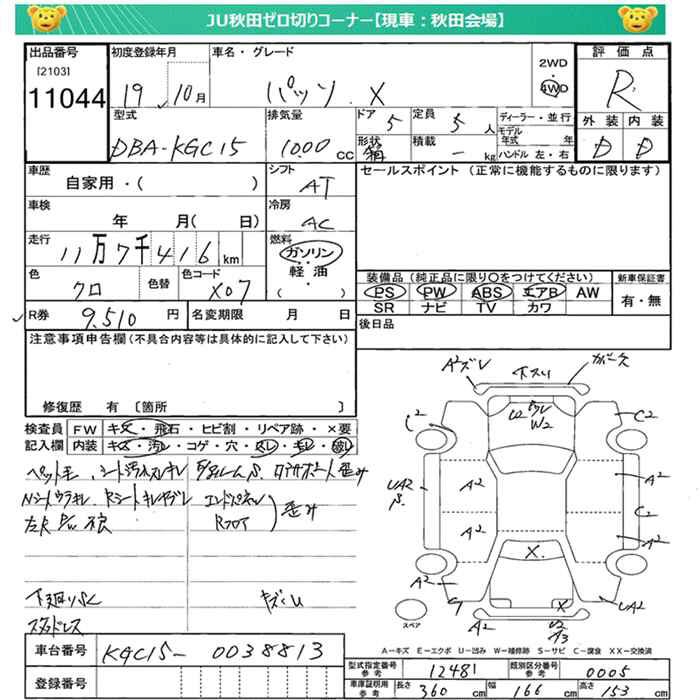 JU秋田ゼロ切りコーナー【現車：秋田会場】
出品番号 初度登録年月 車名・グレード 2WD 評価点
[2103] 19 10月 パッソ X 4WD R
11044 型式 排気量 ドア 5 定員 5人 ディーラー・並行 外装 内装
DBA-KGC15 1000 CC 形状 積載 - kg モデル年式 年 D D
ハンドル 左・右
車歴 自家用・( ) シフト AT セールスポイント (正常に機能するものに限ります)
車検 年 月( 日) 冷房 AC
走行 11万7千416 km 燃料 ガソリン
軽油
・( )
色 クロ 色替 色コード X07 装備品 (純正品に限り○をつけてください) 新車保証書
PS PW ABS エアB AW 有・無
SR ナビ TV カワ
R券 9,510 円 名変期限 月 日 後日品
注意事項申告欄 (不具合内容等は具体的に記入して下さい)
修復歴 有 [箇所 ]
検査員 FW キズ・飛石・ヒビ割・リペア跡・×要
記入欄 内装 キズ・汚レ・コゲ・穴・スレ・キレ・破レ
A²ズレ 下スリ
U2 W2
C² C2
A² A²
A² C2
A²
A² X UA2
X
スペア A² U2 A3
歪み
Rフロア
キズU
スタッドレス
A－キズ E－エクボ U－凹み W－補修跡 S－サビ C－腐食 XX－交換済
車台番号 KGC15- 0038813
登録番号
型式指定番号 参考 12481 類別区分番号 参考 0005
車庫証明用 参考 長さ 360 cm 幅 166 cm 高さ 153 cm